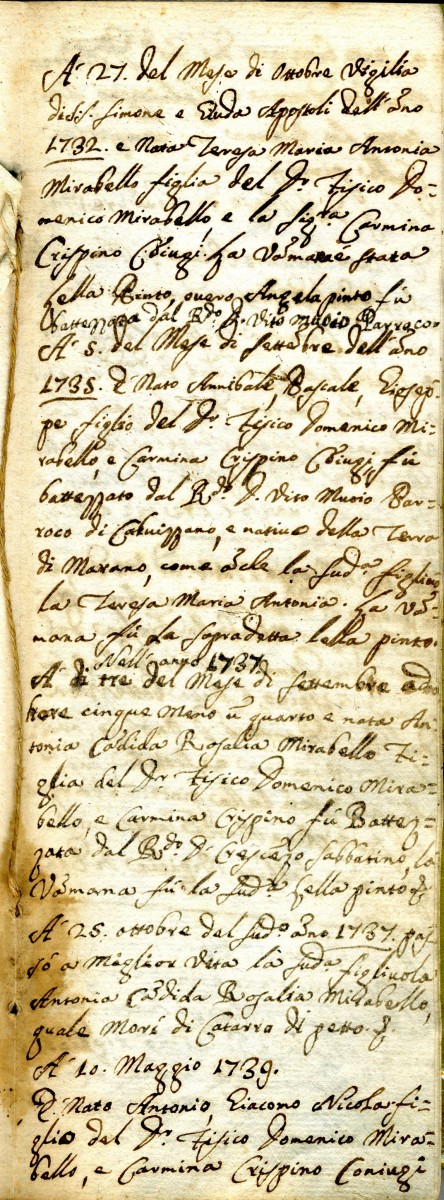 A' 27. del Mese di Ottobre Vigilia
di SS. Simone e Giuda Apostoli dell'āno
1732. e Nata Teresa Maria Antonia
Mirabello figlia del Dr. Fisico Do=
menico Mirabello, e la Sigra. Carmina
Crispino C̄oiugi. La Vāmana e stata
Lella Pinto, overo Angela pinto fù
battezzata dal Rdo. D. Vito Muoio Parroco
A' 5. del Mese di Settēbre dell'āno
1735. E Nato Annibale, Pascale, Giesep=
pe figlio del Dr. Fisico Domenico Mi=
rabello, e Carmina Crispino C̄oiugi, fù
battezzato dal Rdo. D. Vito Muoio Par=
roco di Calvizzano, e nativo della Terra
di Marano, come āche la suda. figliuo
la Teresa Maria Antonia. La Vā=
mana fù la sopradetta Lella pinto.
Nell'anno 1737
A' di tre del Mese di Settembre ad
hore cinque meno ū quarto e nata An
tonia Cādida Rosalia Mirabello Fi=
glia del Dr. Fisico Domenico Mira=
bello, e Carmina Crispino fù Battez=
zata dal Rdo. D. Crescēzo Sabbatino, la
Vāmana fù la suda. Lella pinto
A' 25. ottobre del sudo. āno 1737. pas
sò a Miglior Vita la suda. figliuola
Antonia Cādida Rosalia Mirabello,
quale Morì di Catarro di petto.
A' 10. Maggio 1739.
E Nato Antonio, Giacomo Nicola fi=
glio del Dr. Fisico Domenico Mira=
bello, e Carmina Crispino Coniugi